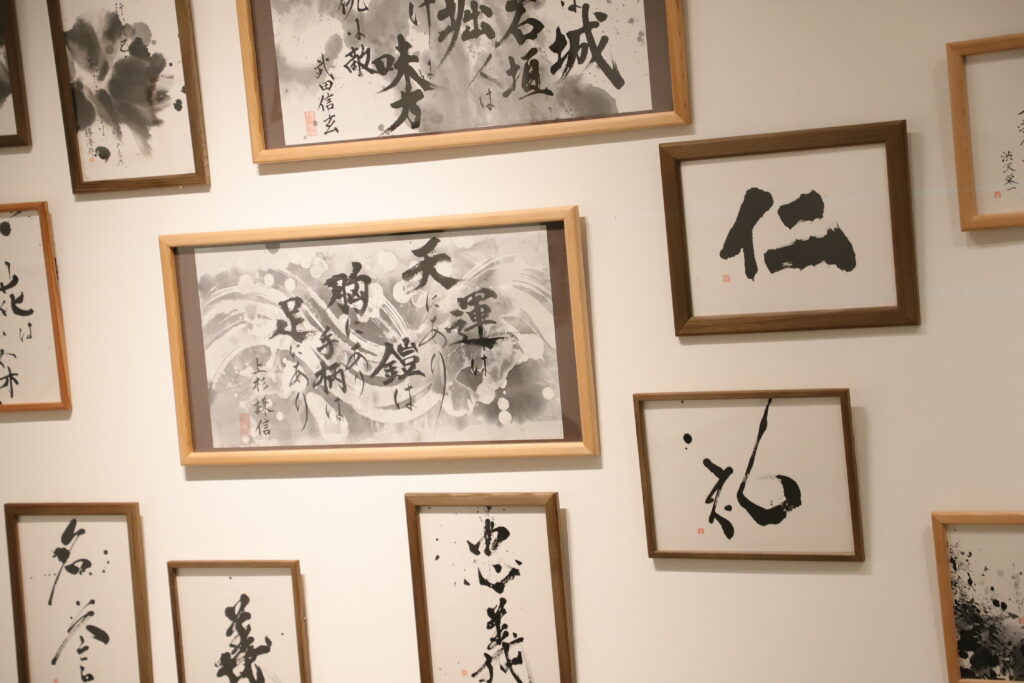 は城
石垣
人は
堀
けは
味方
は敵
武田信玄
運は
天にあり
鎧は
胸にあり
手柄は
足にあり
上杉謙信
仁
礼
渋沢栄一
花は
名誉
義
忠義